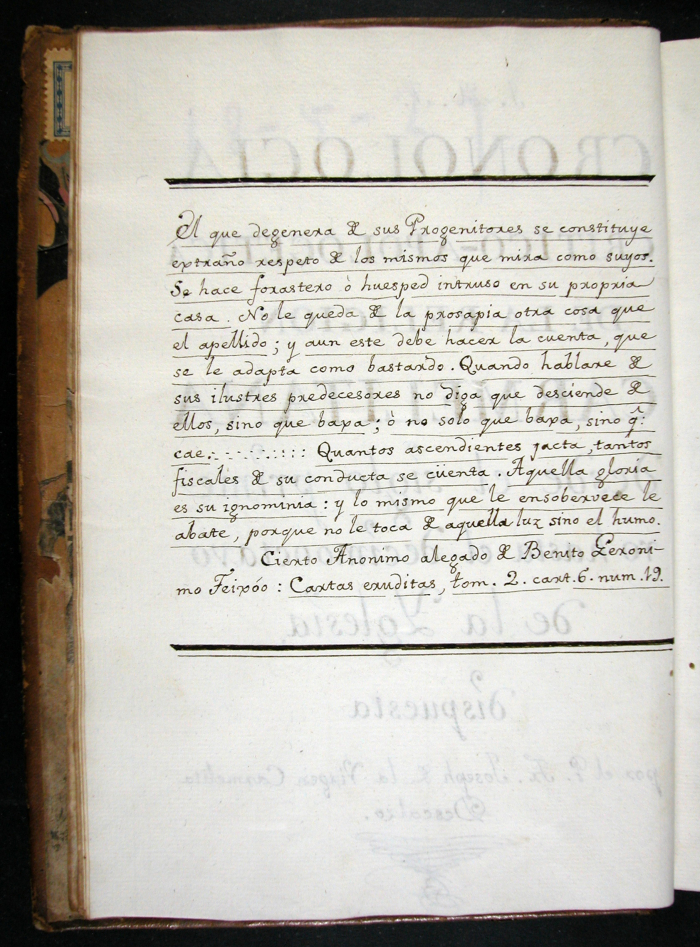 El que degenera de sus Progenitores se constituye
extraño respeto de los mismos que mira como suyos.
Se hace forastero ò huesped intruso en su propria
casa. No le queda de la prosapia otra cosa que
el apellido; y aun este debe hacer la cuenta, que
se le adapta como bastardo. Quando hablare de
sus ilustres predecesores no diga que desciende de
ellos, sino que baxa; ò no solo que baxa, sino q.
cae.......... Quantos ascendientes jacta, tantos
fiscales de su conducta se cüenta. Aquella gloria
es su ignominia: y lo mismo que le ensobervece le
abate, porque no le toca de aquella luz sino el humo.
Cierto Anonimo alegado de Benito Geroni-
mo Feixóo: Cartas eruditas, tom. 2. cart. 6. num. 19.